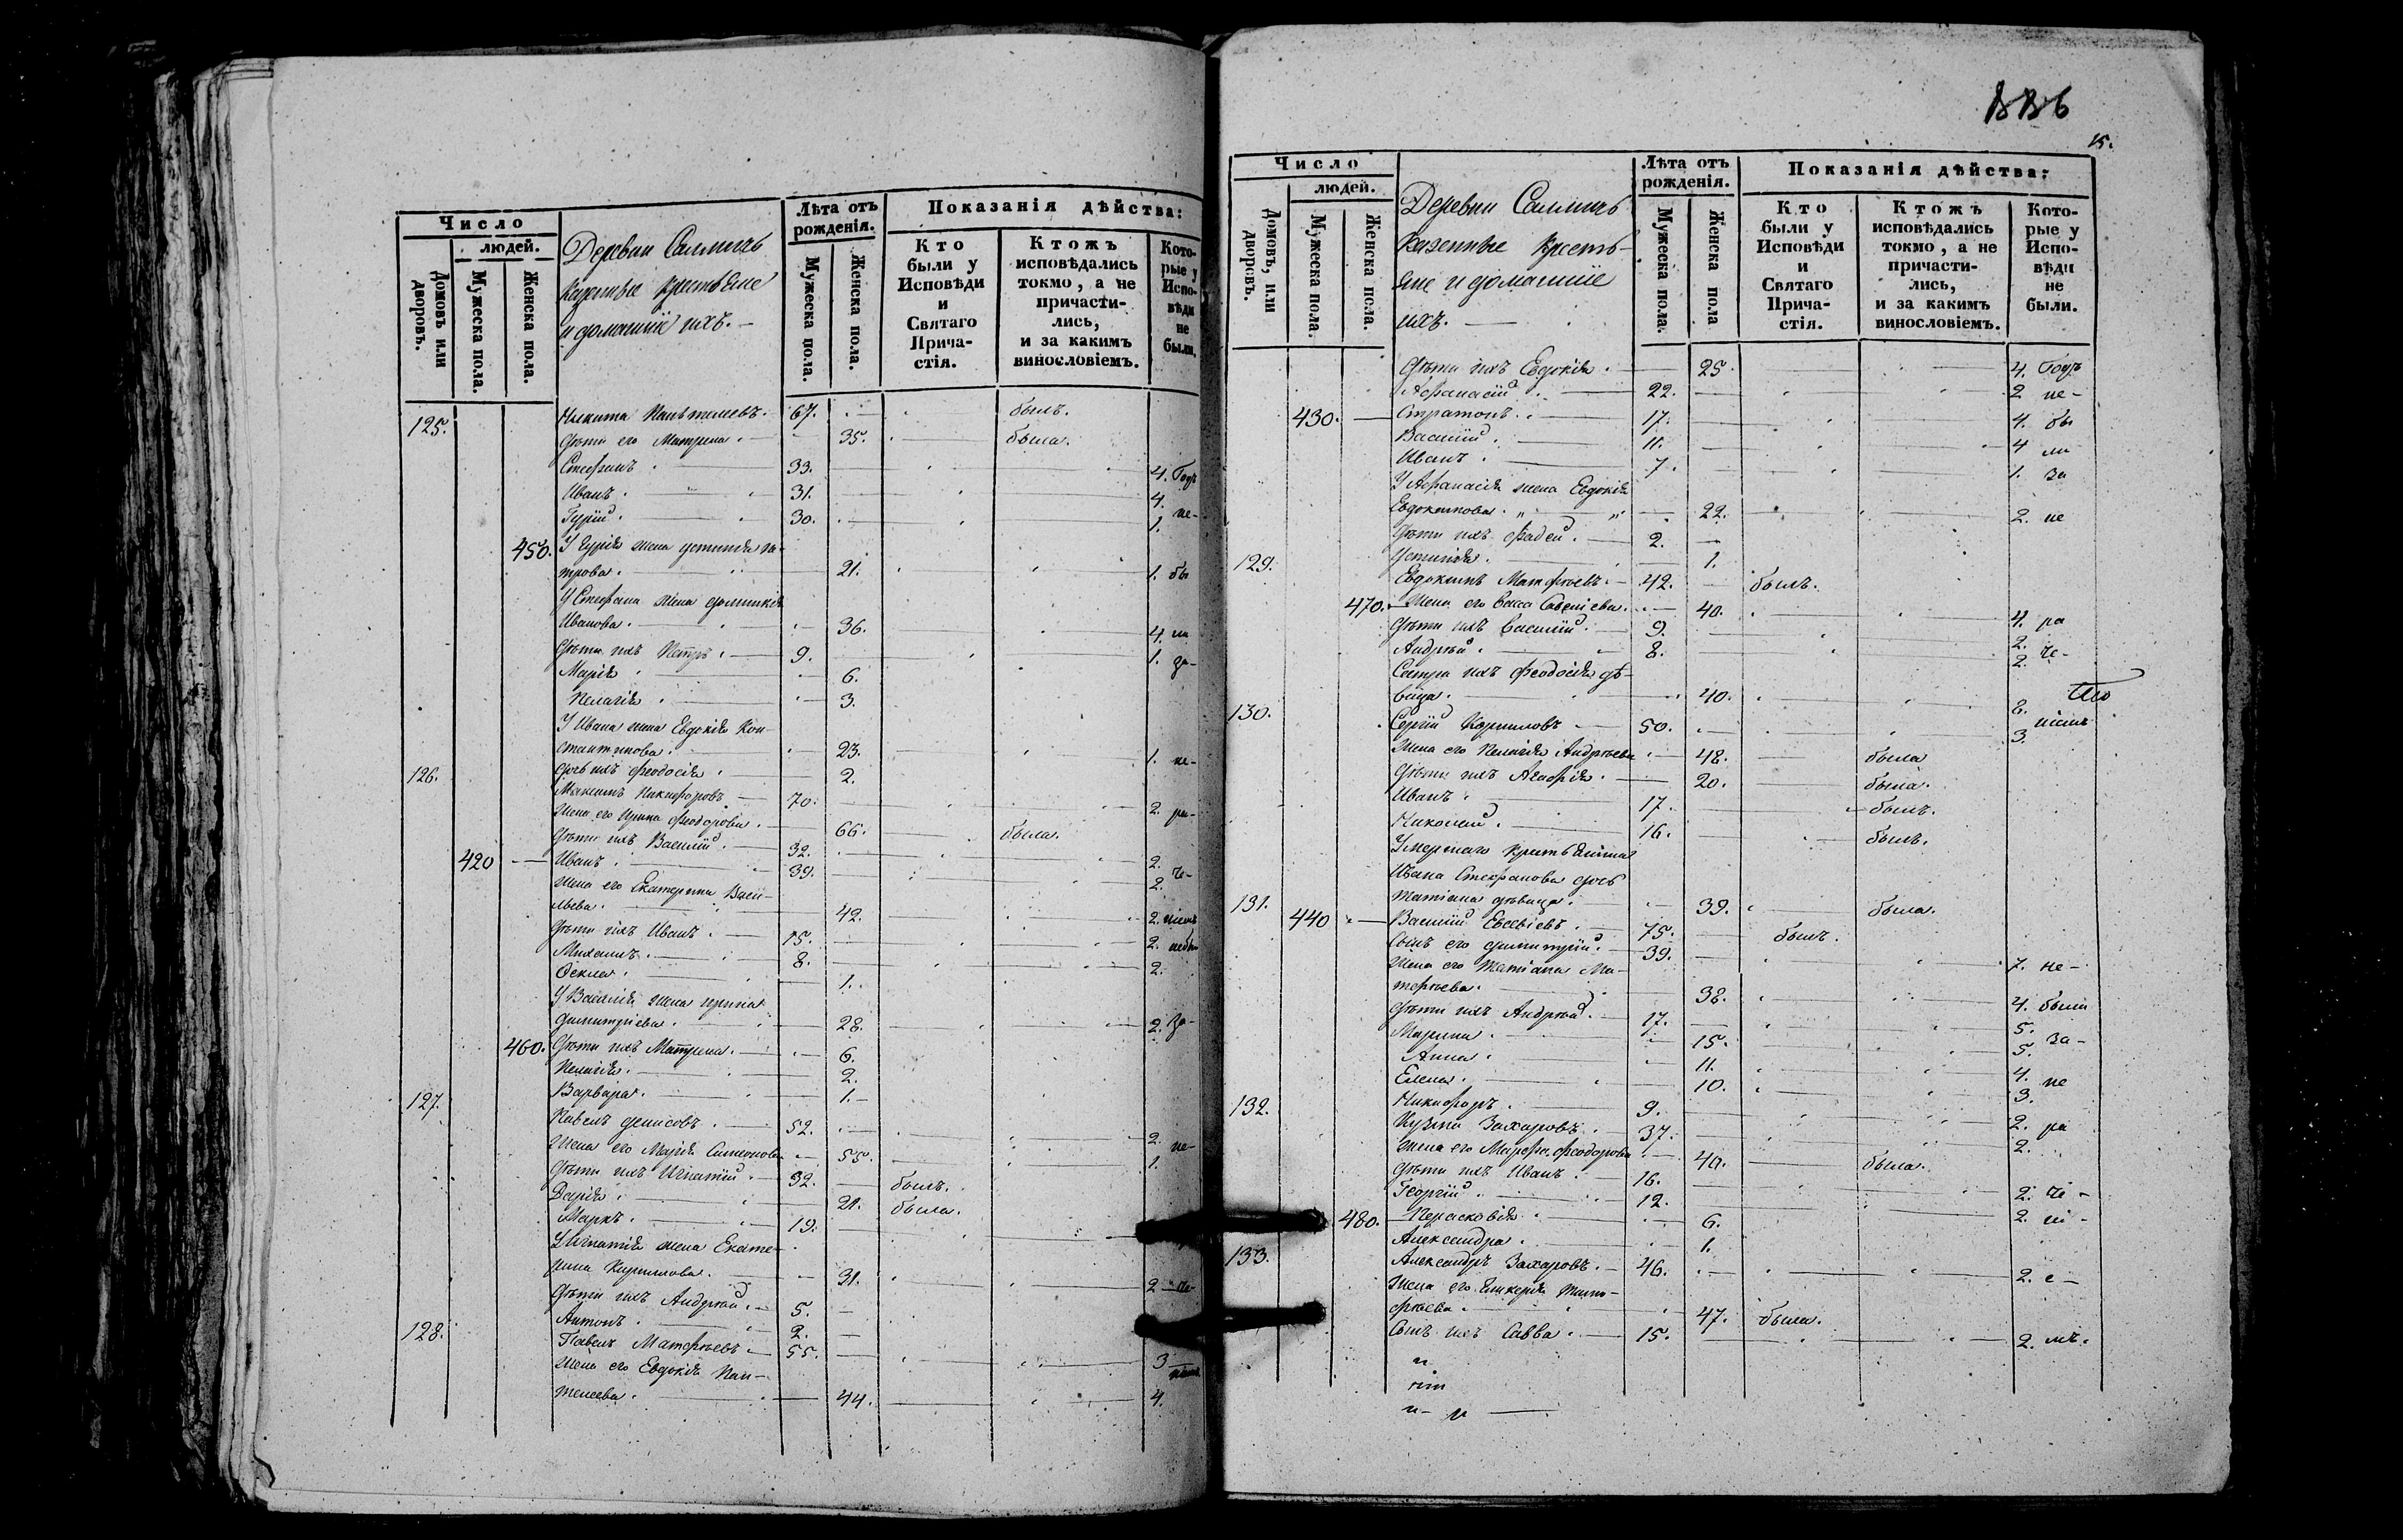 Число
людей.
Домовъ или дворовъ.
Мужеска пола.
Женска пола.
Деревни
и домашніе ихъ.
Лѣта отъ рожденія.
Мужеска пола.
Женска пола.
Показанія дѣйства:
Кто были у Исповѣди и Святаго Причастія.
Ктожъ исповѣдались токмо, а не причастились, и за какимъ винословіемъ.
Которые у Исповѣди не были.
125. Никита 67. былъ.
Дѣти его Матрена. 35. была.
Стефанъ. 33. 4.
Иванъ. 31. 4. не-
Гурій. 30. 1.
450. У Гурія жена Устинія Пе-
трова. 21. 1. бы
У Стефана жена Домникія
Иванова. 36. 4. ли
Дѣти ихъ Петръ. 9. 1. за-
Марія 6.
Пелагія 3.
У Ивана жена Евдокія Кон-
стантинова. 23. 1. не-
дочь ихъ Феодосія 2.
126. Максимъ Никифоровъ 70. 2. ра-
Жена его Ирина Феодорова. 66. была.
Дѣти ихъ Василій. 32. 2.
420 Иванъ. 39. 2.
Жена его Екатерина Васи-
льева. 42. 2.
Дѣти ихъ Иванъ. 15. 2.
Михаилъ. 8. 2.
Ѳекла. 1.
У Василія жена Ирина
Димитріева. 28. 2. за-
460. Дѣти ихъ Матрена. 6.
Пелагія. 2.
Варвара. 1.
127. Павелъ Денисовъ. 52. 2. не-
Жена его Марія Симеонова 55. 1.
Дѣти ихъ Игнатій. 32. былъ.
Дарія. 21. была.
Маркъ. 19.
У Игнатія жена Екате-
рина Кириллова. 31. 2
Дѣти ихъ Андрей. 5.
Антонъ. 2.
128. Павелъ Матфѣевъ 55. 3
Жена его Евдокія Пан-
телеева. 44. 4.
15.
Число
людей.
Домовъ, или дворовъ.
Мужеска пола.
Женска пола.
Деревни
казенные кресть-
яне и домашніе
ихъ.
Лѣта отъ рожденія.
Мужеска пола.
Женска пола
Показанія дѣйства:
Кто были у Исповѣди и Святаго Причастія.
Ктожъ исповѣдались токмо, а не причастились, и за какимъ винословіемъ.
Которые у Исповѣди не были.
Дѣти ихъ Евдокія. 25. 4.
Афанасій 22. 2 не-
430. Стратонъ. 17. 4. бы
Василій. 11. 4 ли
Иванъ. 7. 1. за
У Афанасія жена Евдокія
Евдокимова. 22. 2. не
Дѣти ихъ Фадей. 2.
Устинія. 1.
129. Евдокимъ Матфѣевъ. 42. былъ.
470. Жена его Васса Савеліева. 40. 4. ра
Дѣти ихъ Василій. 9. 2.
Андрей. 8. 2.
Сестра ихъ Феодосія дѣ-
вица. 40. 2.
130. Сергій Кирилловъ 50. 3.
Жена его Пелагія Андреева 48. была
Дѣти ихъ Агафія. 20. была.
Иванъ. 17. былъ.
Николай. 16. былъ.
Умершаго крестьянина
Ивана Стефанова дочь
Татіана дѣвица. 39. была.
131. 440 Василій Евсевіевъ. 75. былъ.
Сынъ его Димитрій. 39. 7. не-
Жена его Татіана Ма-
тфеева. 38. 4. были
Дѣти ихъ Андрей. 17. 5.
Марина. 15. 5. за-
Анна. 11. 4.
Елена. 10. 3. не
Никифоръ. 9. 2. ра
132. Кузма Захаровъ. 37. 2.
Жена его Марфа Феодорова 40. была.
Дѣти ихъ Иванъ. 16. 2. че-
Георгій. 12. 2. ні-
480. Парасковія. 6.
Александра. 1.
133. Александръ Захаровъ. 46. 2. е-
Жена его Гликерія Тимо-
фѣева. 47. была.
Сынъ ихъ Савва. 15. 2. мъ.